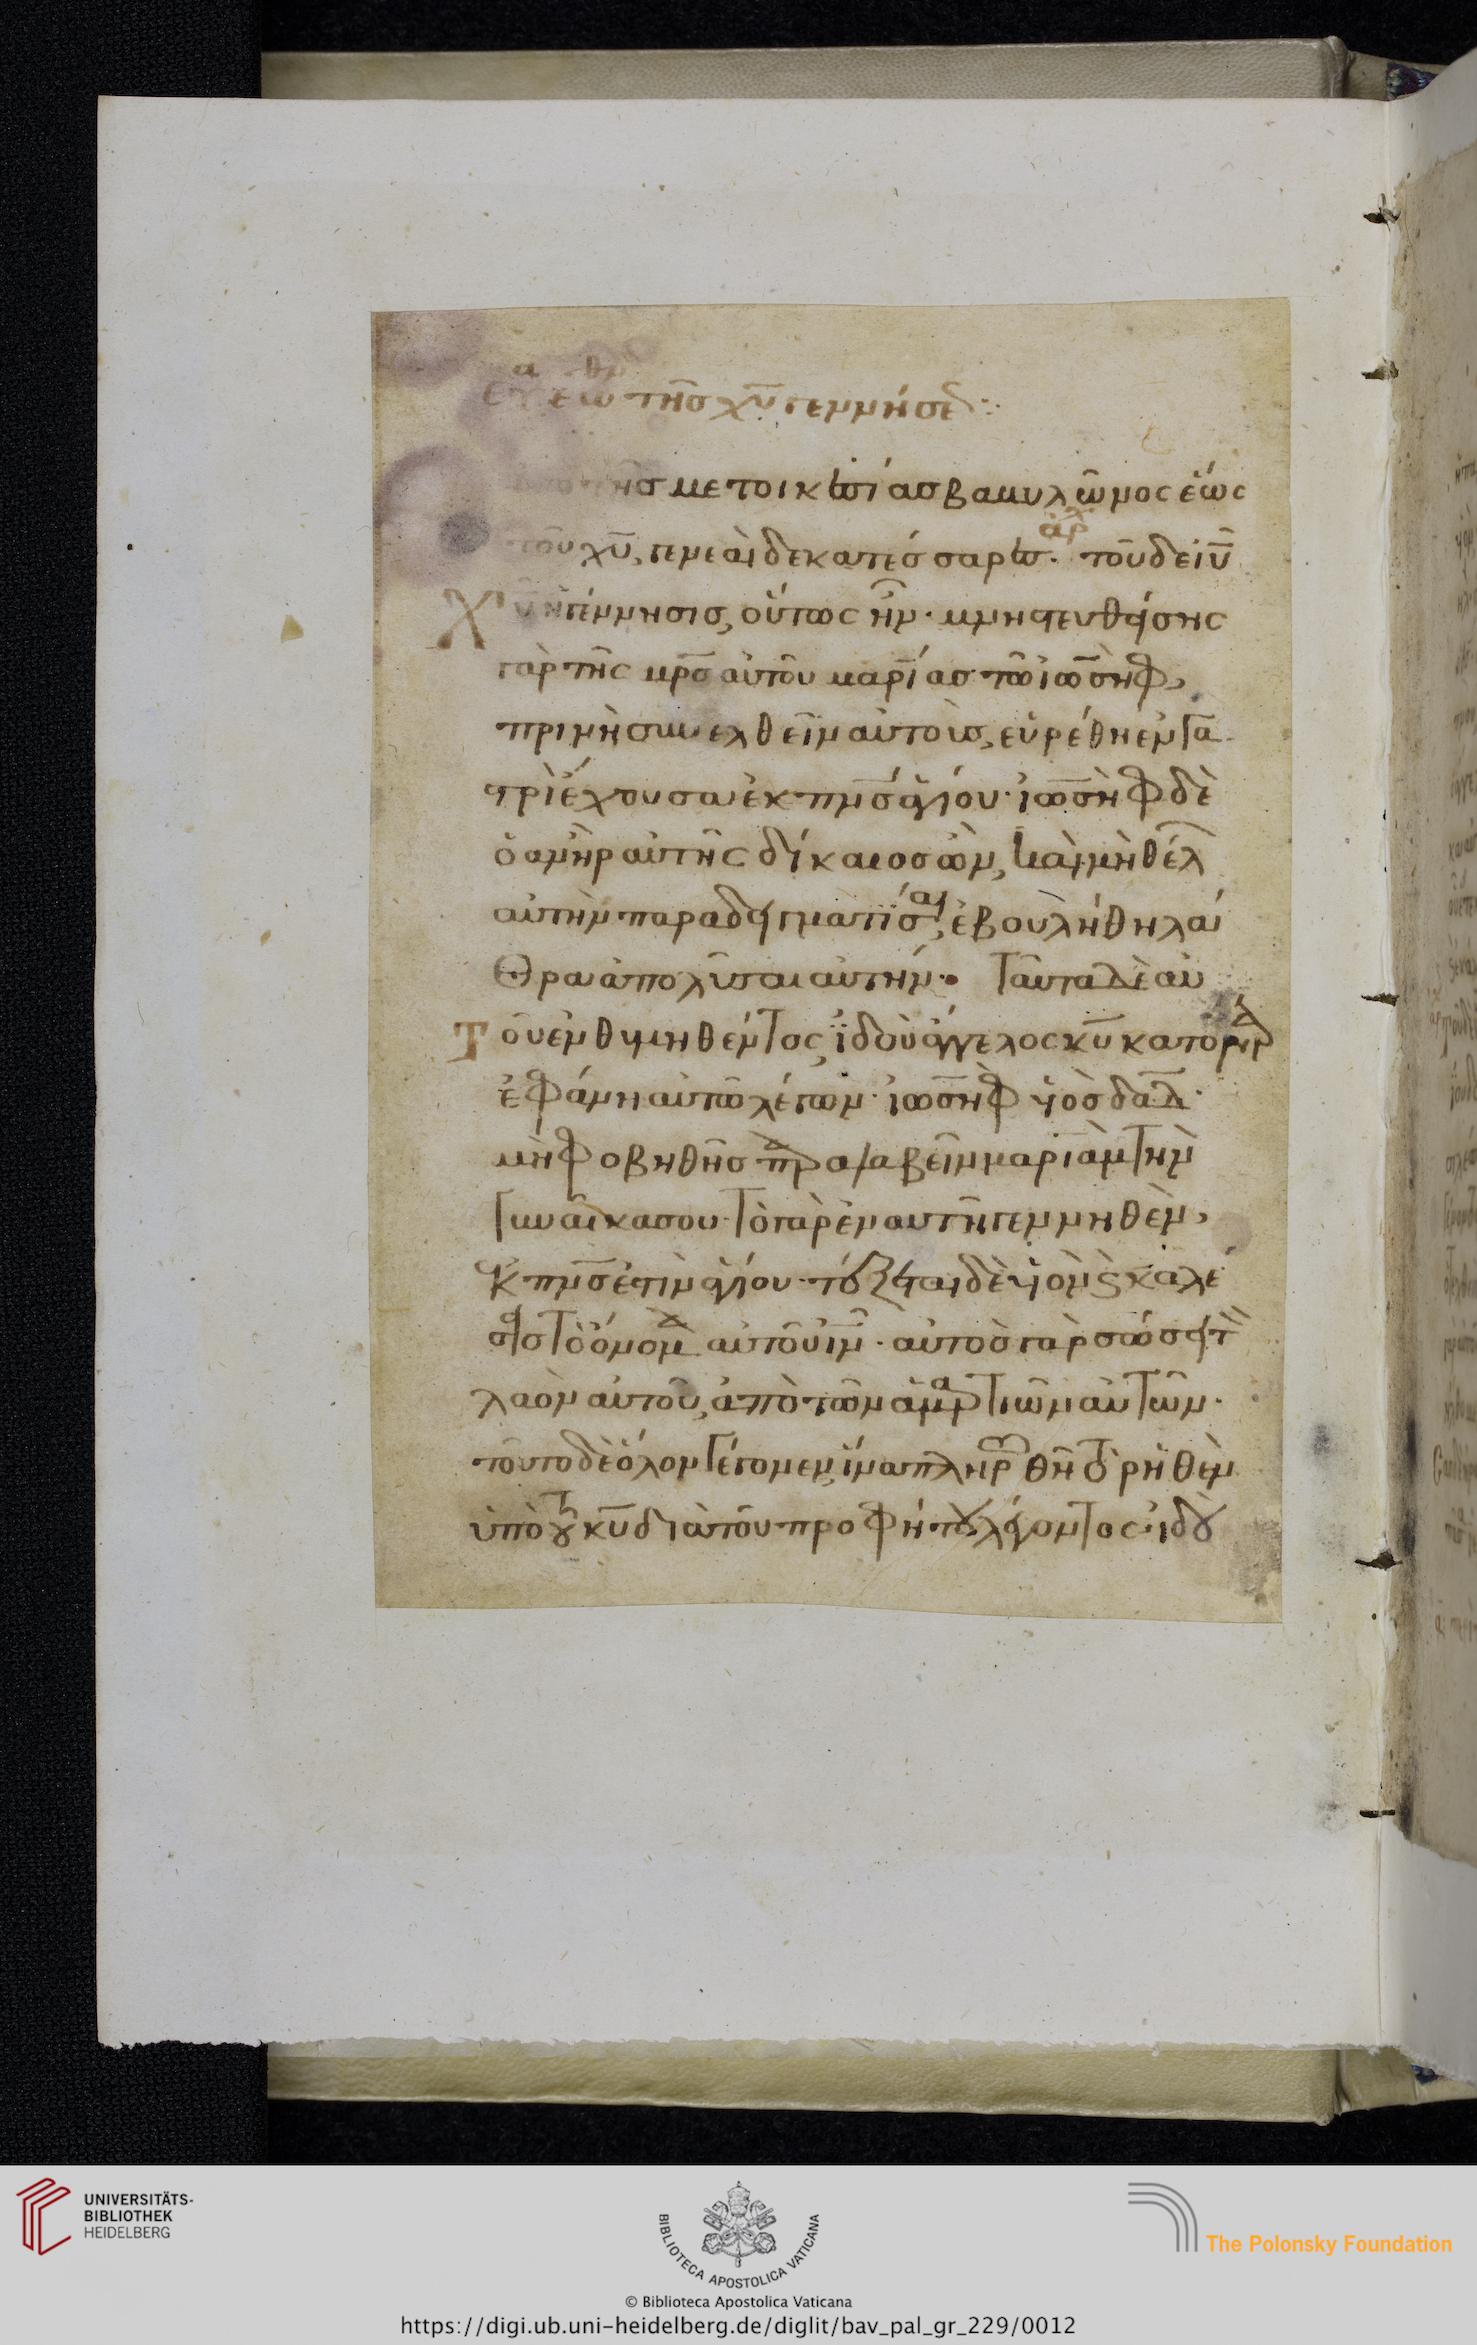 τῆς χυ γεννήσε
τῆς μετοικεσίας βαβυλῶνος ἕως
τοῦ χυ, γενεαὶ δεκατέσσαρες. ἀρχ τοῦ δὲ ιυ
Χυ ἡ γέννησις, οὕτως ἦν· μνηστευθείσης
γὰρ τῆς μρς αὐτοῦ μαρίας τῶ ἰωσὴφ,
πρινὴ συνελθεῖν αὐτοὺς, εὑρέθη ἐν γα
στρὶ ἔχουσα ἐκ πνς ἁγίου· ἰωσὴφ δὲ
ὁ ἀνὴρ αὐτῆς δίκαιος ὢν, καὶ μὴ θέλ
αὐτὴν παραδειγματίσαι, ἐβουλήθη λά
θρα ἀπολῦσαι αὐτήν· Ταῦτα δὲ αὐ
Τοῦ ἐνθυμηθέντος, ἰδοὺ ἄγγελος κυ κατ ὄναρ
ἐφάνη αὐτῶ λέγων· ἰωσὴφ υἱὸς δαδ·
μὴ φοβηθῆς παραλαβεῖν μαριὰμ τὴν
γυναῖκα σου· τὸ γὰρ ἐν αυτῆ γεννηθὲν,
ἐκ πνς ἐστὶν ἁγίου· τέξεται δὲ υἱὸν καὶ καλέ
σεις τὸ ὄνομα αὐτοῦ ιν· αὐτὸς γὰρ σώσει τὸν
λαὸν αὐτοῦ, ἀπὸ τῶν ἁμαρτιῶν αὐτῶν·
τοῦτο δὲ ὅλον γέγονεν, ἵνα πληρωθῆ τὸ ῥηθὲν
ὑπὸ τοῦ κυ διὰ τοῦ προφήτου λέγοντος· ἰδοὺ
UNIVERSITÄTS-
BIBLIOTHEK
HEIDELBERG
BIBLIOTECA APOSTOLICA VATICANA
The Polonsky Foundation
© Biblioteca Apostolica Vaticana
https://digi.ub.uni-heidelberg.de/diglit/bav_pal_gr_229/0012